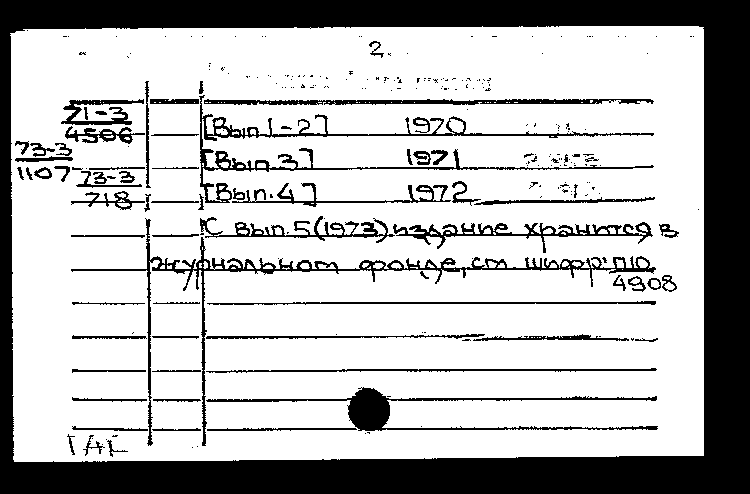 2.
71-3
4506 [Вып.1-2] 1970
73-3
1107 [Вып.3] 1971
73-3
718 [Вып.4] 1972
С вып.5(1973) издание хранится в
журнальном фонде, см. шифр: П10
4908